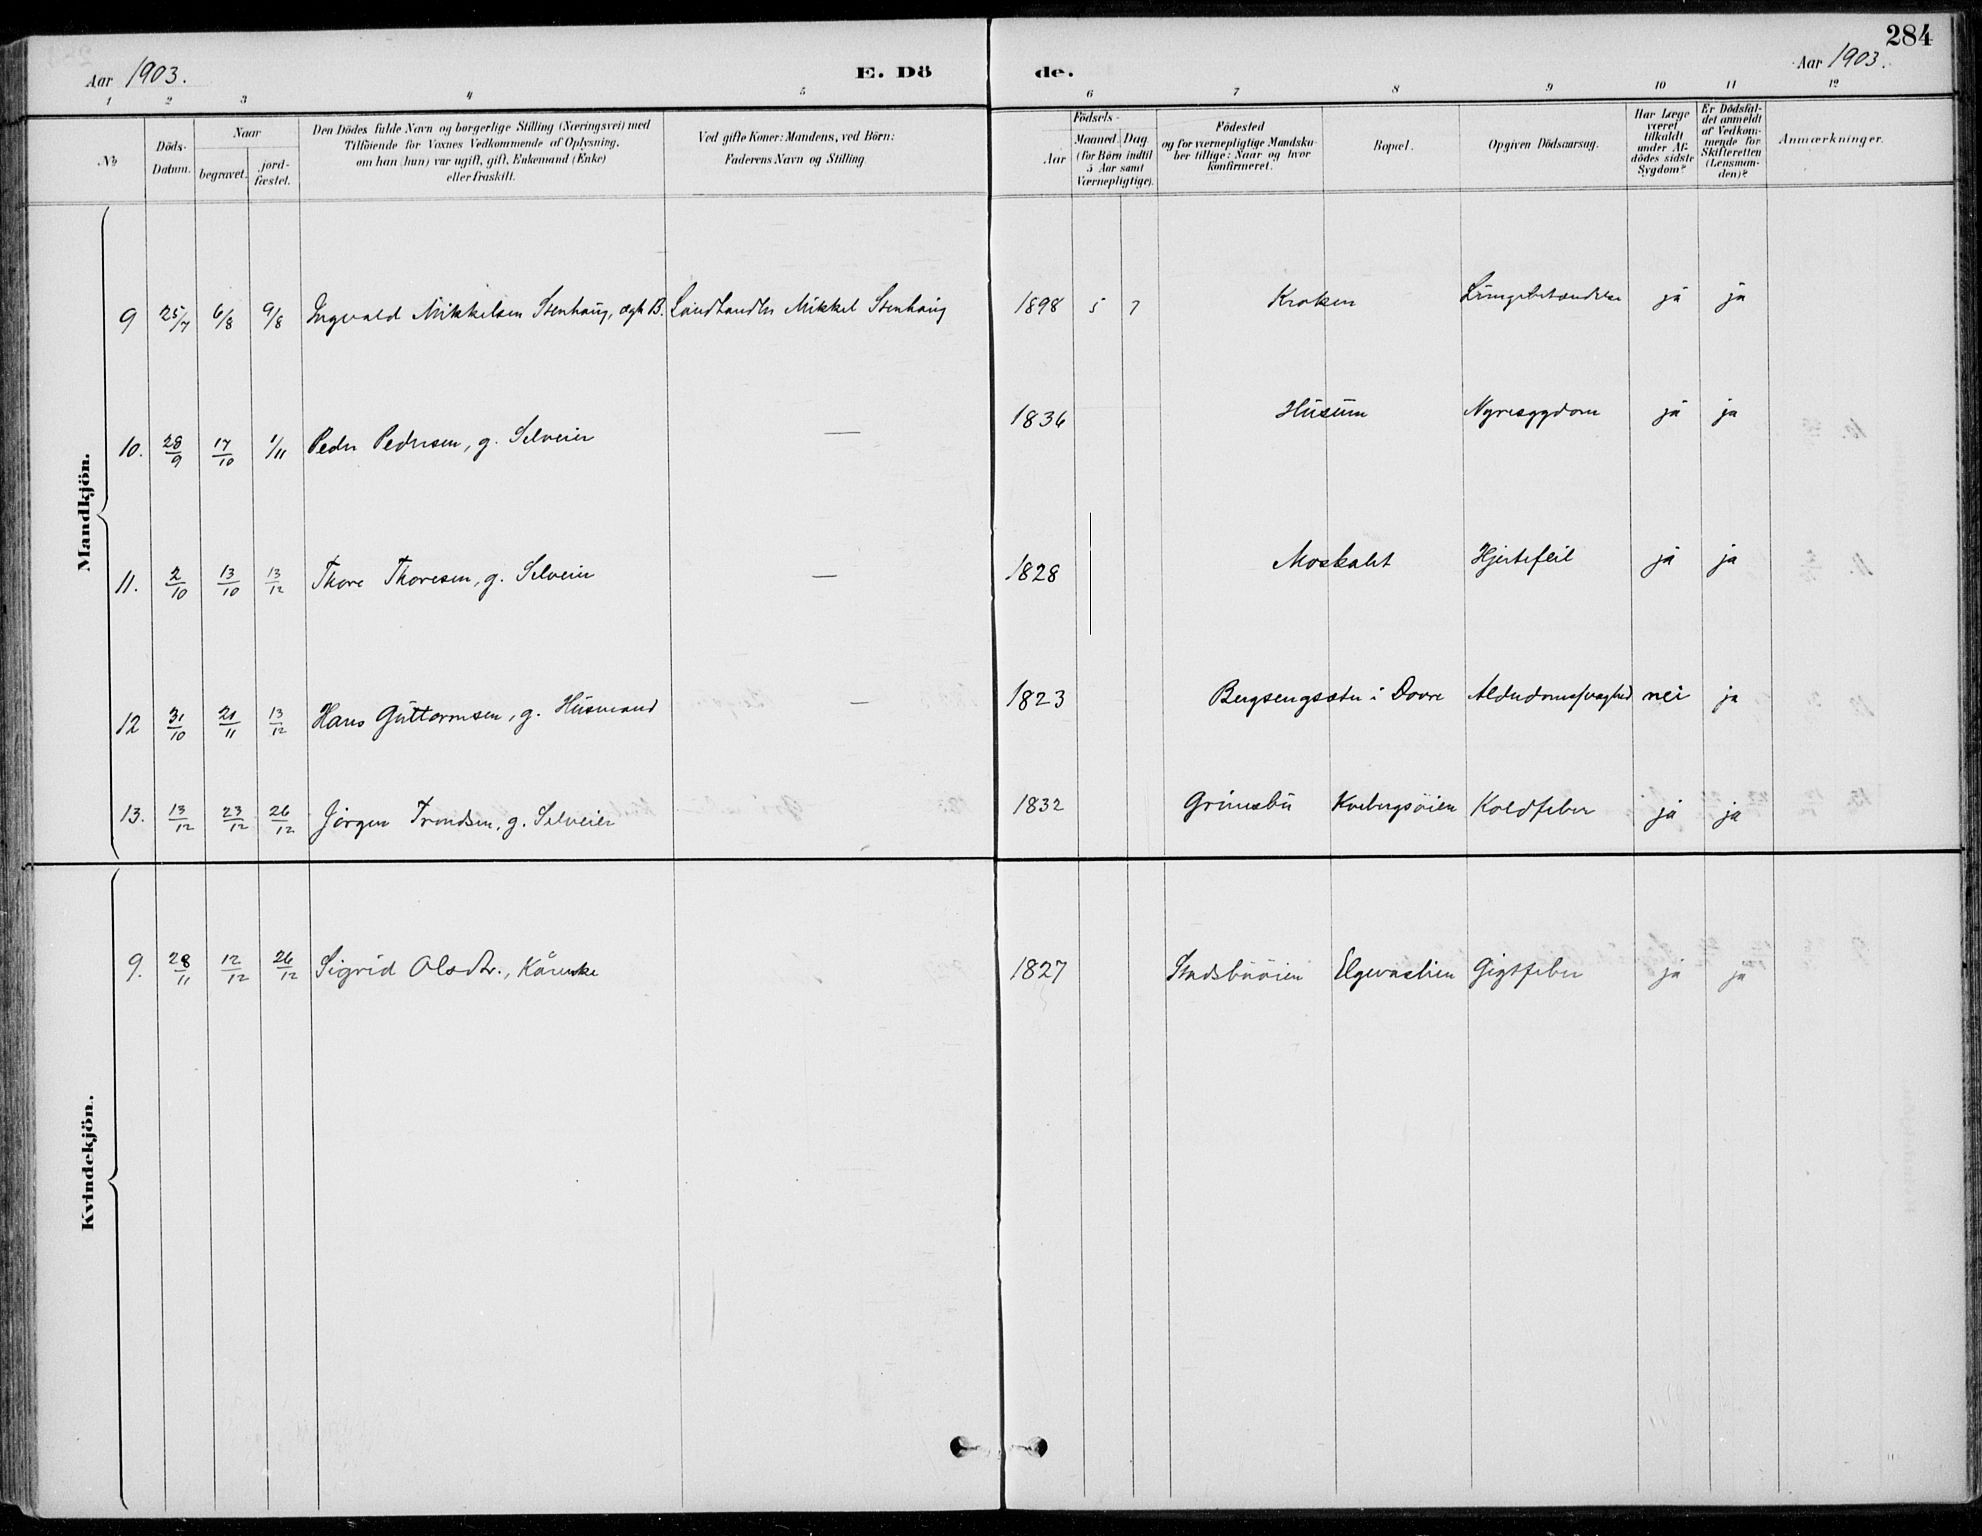 284
Aar 1903.
E. Dö
de.
Aar 1903.
1 2 3 4 5 6 7 8 9 10 11 12
No
Döds-
Datum.
Naar
begravet.
jord-
fæstet.
Den Dödes fulde Navn og borgerlige Stilling (Næringsvei) med
Tilföiende for Voxnes Vedkommende af Oplysning,
om han (hun) var ugift, gift, Enkemand (Enke)
eller fraskilt.
Ved gifte Koner: Mandens, ved Börn:
Faderens Navn og Stilling
Födsels-
Aar
Maaned.
Dag
(for Börn indtil
5 Aar samt
Værnepligtige).
Födested
og for værnepligtige Mandsku-
ber tillige: Naar og hvor
konfirmeret.
Bopæl.
Opgiven Dödsaarsag.
Har Læge
været
tilkaldt
under Af-
dödes sidste
Sygdom?
Er Dödsfal-
det anmeldt
af Vedkom-
mende for
Skifteretten
(Lensman-
den)?
Anmærkninger.
Mandkjön.
9 25/7 6/8 9/8 Ingvald Mikkelsen Stenhaug, ægt B. Landhandler Mikkel Stenhaug 1898 5 7 Kroken Lungebetændelse ja ja
10. 28/9 17/10 1/11 Peder Pedersen, g. Selveier — 1836 Husum Nyresygdom ja ja
11. 2/10 13/10 13/12 Thore Thoresen, g. Selveier — 1828 Moskalet Hjertefeil ja ja
12 31/10 21/11 13/12 Hans Guttormsen, g. Husmand — 1823 Bergsengsæter i Dovre Alderdomssvaghed nei ja
13. 13/12 23/12 26/12 Jörgen Trondsen, g. Selveier 1832 Grimsbu Kvebergsöien Koldfeber ja ja
Kvindekjön.
9. 28/11 12/12 26/12 Sigrid Olsdtr., Kårenke 1827 Stadsbuöien Elgevaslien Gigtfeber ja ja